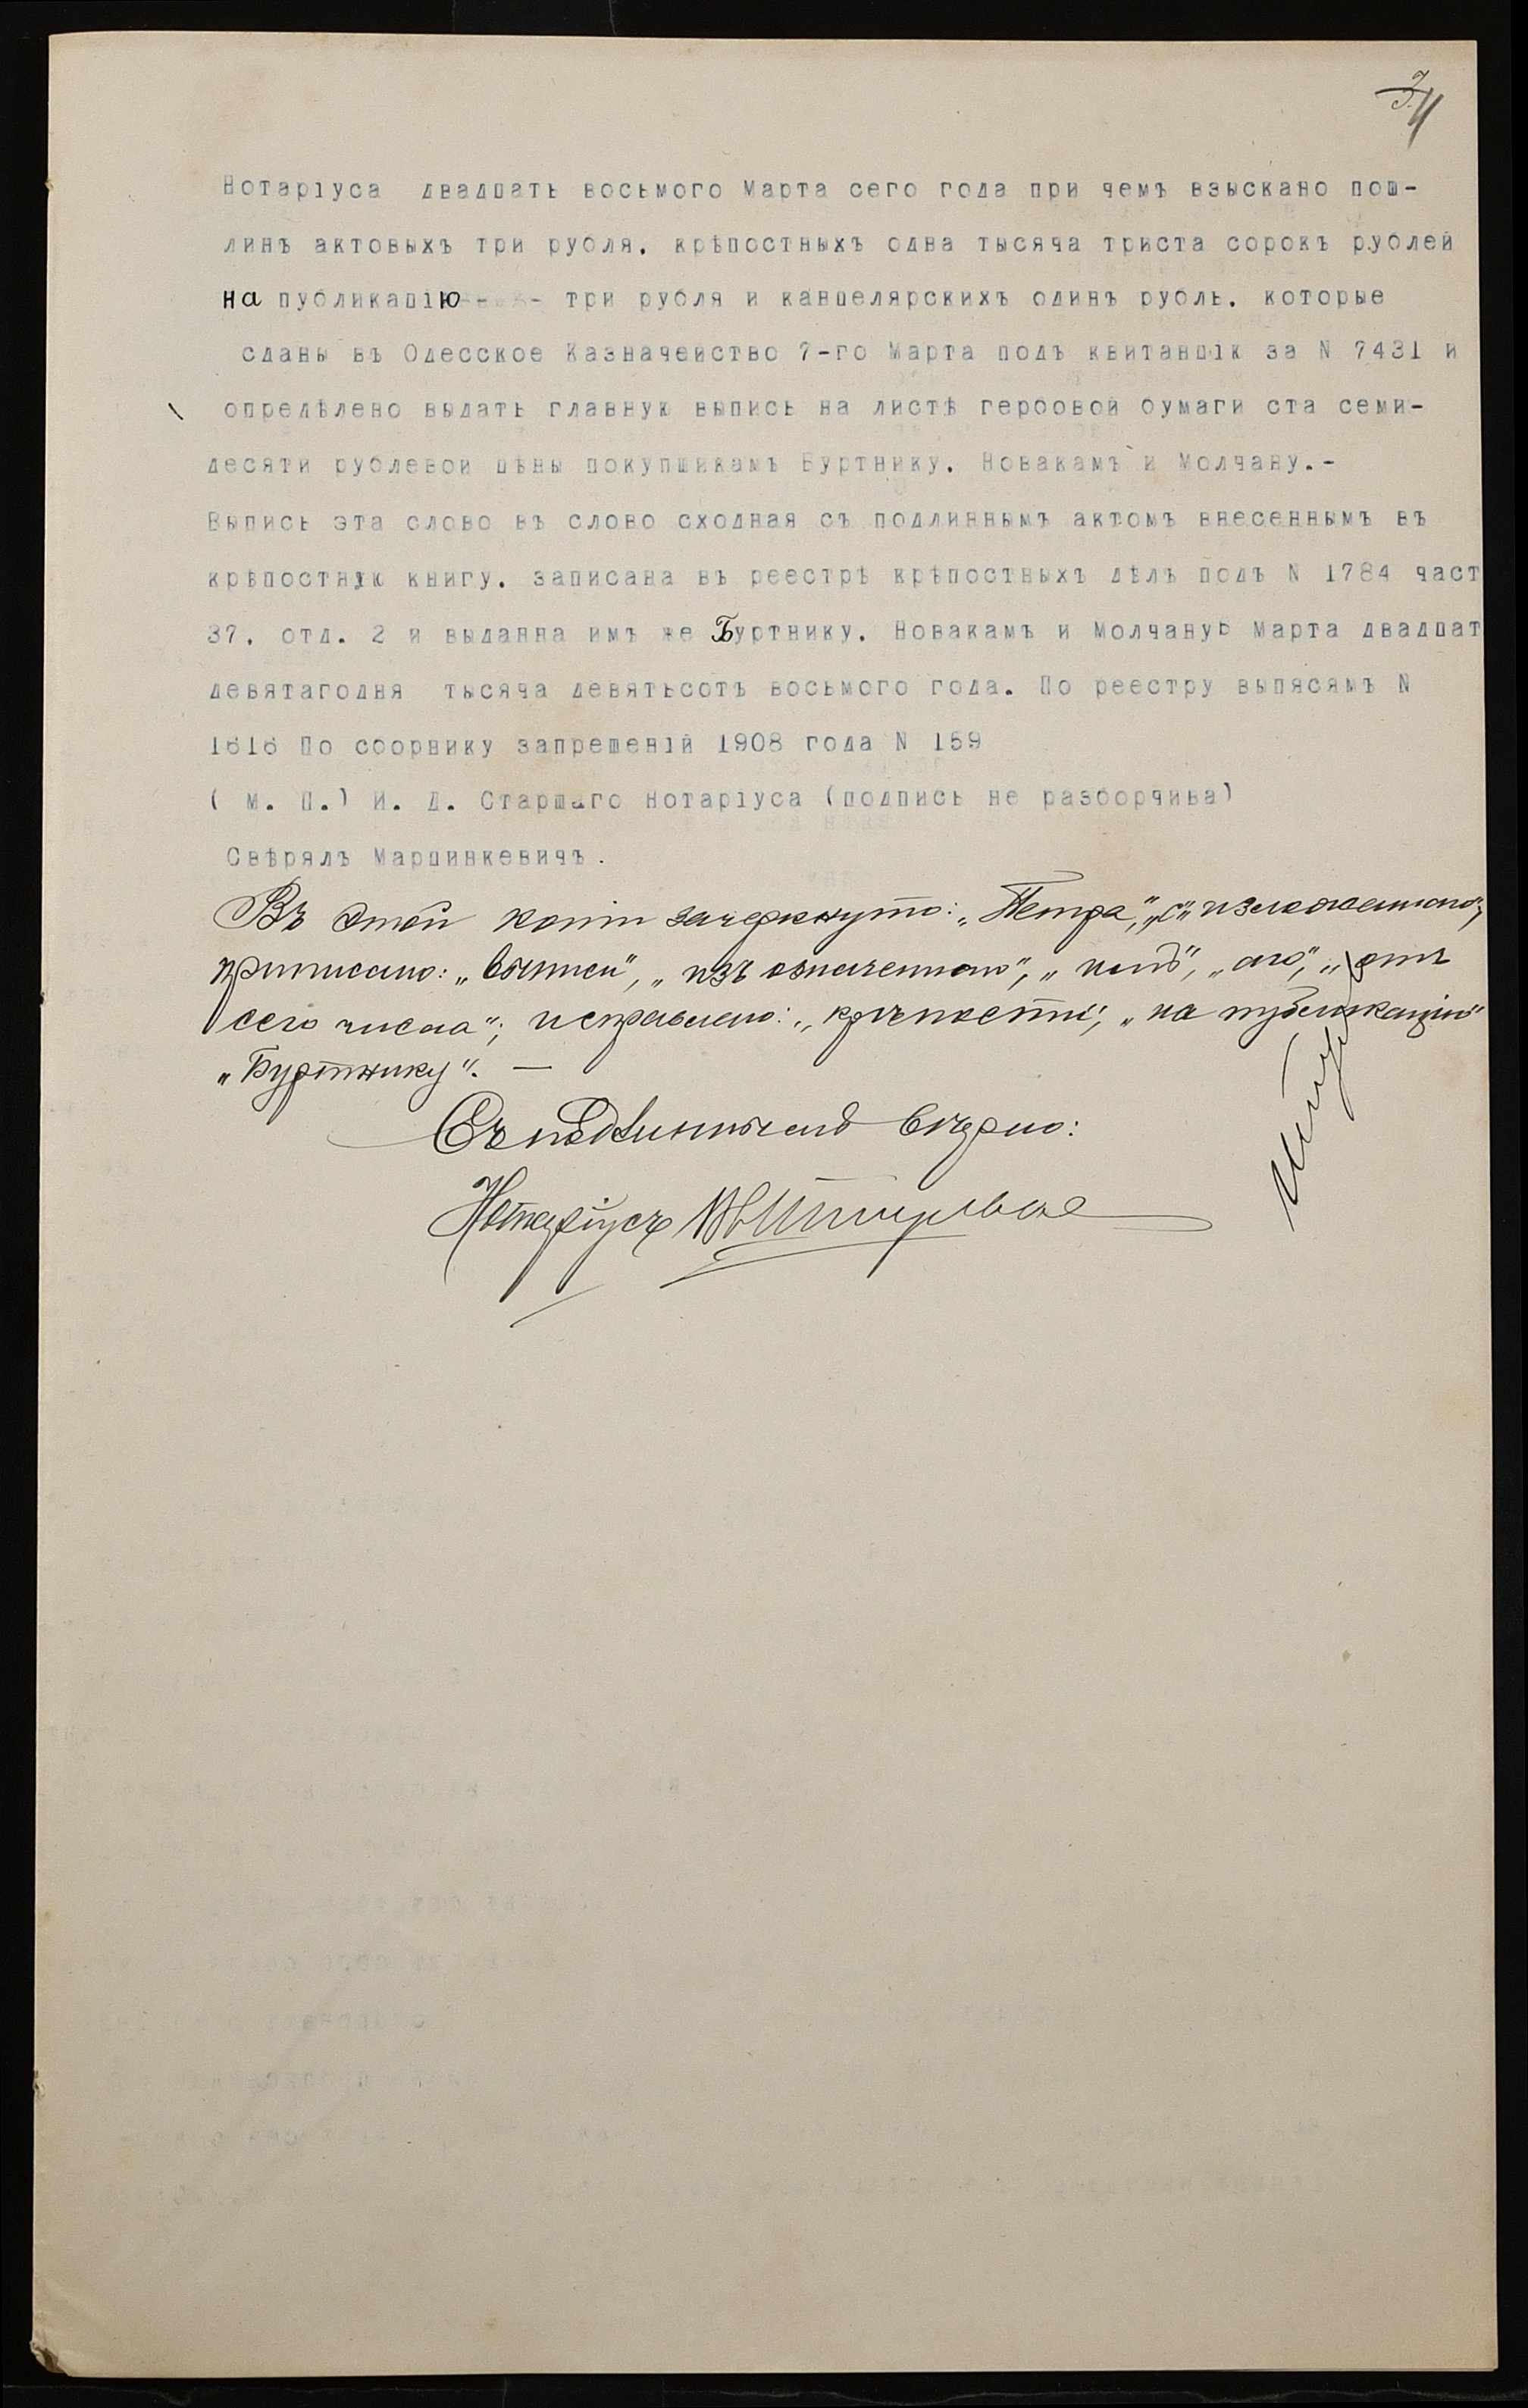 Нотаріуса двадцать восьмого Марта сего года при чемъ взыскано пош-
линъ актовыхъ три рубля, крѣпостныхъ одна тысяча триста сорокъ рублей
на публикацію - - три рубля и канцелярскихъ одинъ рубль, которые
сданы въ Одесское Казначейство 7-го Марта подъ квитанцію за N 7431 и
опредѣлено выдать главную выпись на листѣ гербовой бумаги ста семи-
десяти рублевой цѣны покупщикамъ Буртнику, Новакамъ и Молчану.-
Выпись эта слово въ слово сходная съ подлиннымъ актомъ внесеннымъ въ
крѣпостную книгу, записана въ реестрѣ крѣпостныхъ дѣлъ подъ N 1784 част
37, отд. 2 и выданна имъ же Буртнику, Новакамъ и Молчану Марта двадцат
девятагодня тысяча девятьсотъ восьмого года. По реестру выпясямъ N
1616 По сборнику запрещеній 1908 года N 159
( М. П.) И. Д. Старшаго Нотаріуса (подпись не разборчива)
Свѣрялъ Марцинкевичъ.
Въ этой копіи зачеркнуто: „Петра", „с" „изложеннаго";
приписано: „выписи", „изъ означеннаго", „аго", „отъ
сего числа"; исправлено: „крѣпости", „на публикацію"
„Буртнику". —
Съ подлиннымъ вѣрно:
Нотаріусъ